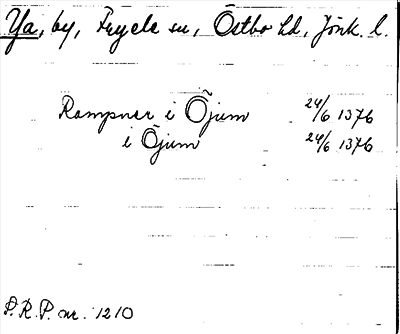 Ya, by, Fryele sn, Östbo hd, Jönk. l.
Rampnar i Õjum 24/6 1376
i Õjum 24/6 1376
P.R.P. nr. 1210